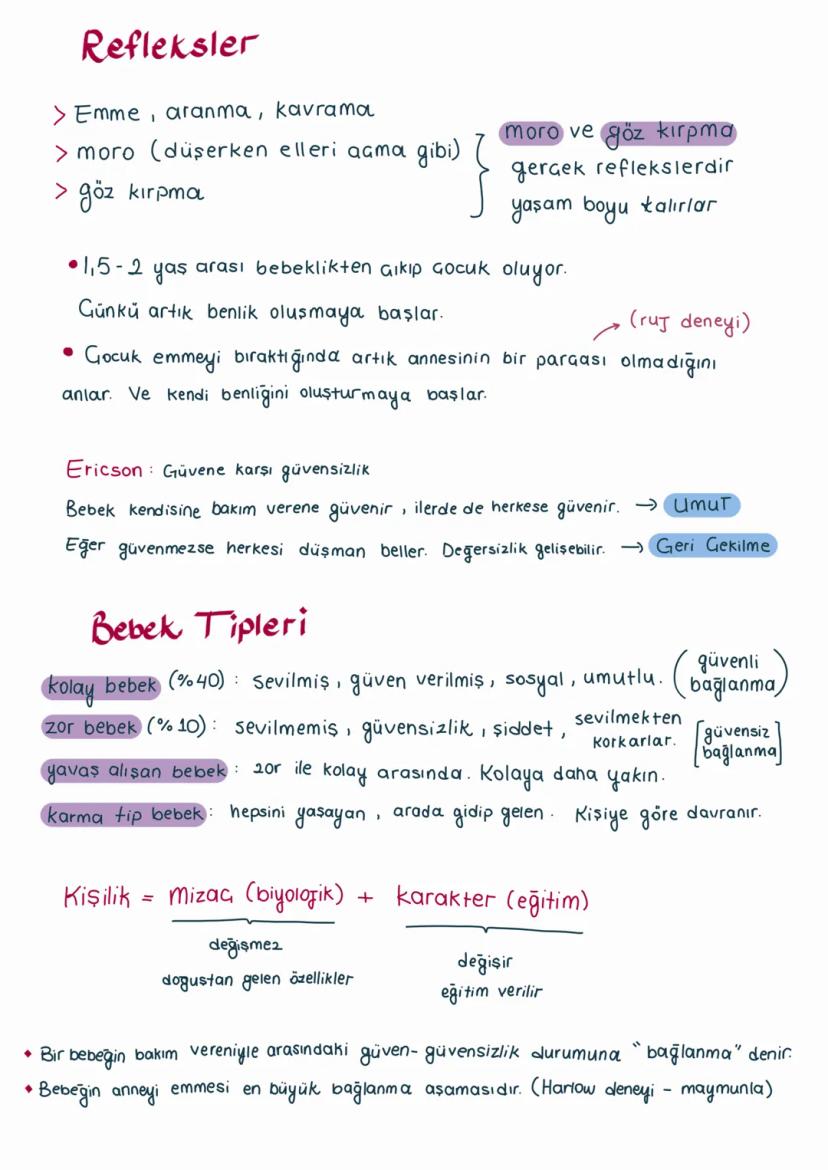 Refleksler
> Emme, aranma, kavrama
> moro (düşerken elleri açma gibi)
> göz kırpma
moro ve göz kırpma
gerçek reflekslerdir
yaşam boyu talırlar
• 1,5-2 yaş arası bebeklikten çıkıp çocuk oluyor.
Çünkü artık benlik oluşmaya başlar.
(ruj deneyi)
• Çocuk emmeyi bıraktığında artık annesinin bir parçası olmadığını
anlar. Ve kendi benliğini oluşturmaya başlar.
Ericson: Güvene karşı güvensizlik
Bebek kendisine bakım verene güvenir, ilerde de herkese güvenir. → Umut
Eğer güvenmezse herkesi düşman beller. Değersizlik gelişebilir. → Geri Çekilme
Bebek Tipleri
kolay bebek (%40): Sevilmiş, güven verilmiş, sosyal, umutlu. (güvenli bağlanma)
zor bebek (%10): sevilmemiş, güvensizlik, şiddet, sevilmekten korkarlar. [güvensiz bağlanma]
yavaş alışan bebek: zor ile kolay arasında. Kolaya daha yakın.
karma tip bebek: hepsini yaşayan, arada gidip gelen. Kişiye göre davranır.
Kişilik = mizaç (biyolojik) + karakter (eğitim)
değişmez
doğuştan gelen özellikler
değişir
eğitim verilir
• Bir bebeğin bakım vereniyle arasındaki güven-güvensizlik durumuna "bağlanma" denir.
• Bebeğin anneyi emmesi en büyük bağlanma aşamasıdır. (Harlow deneyi - maymunla)